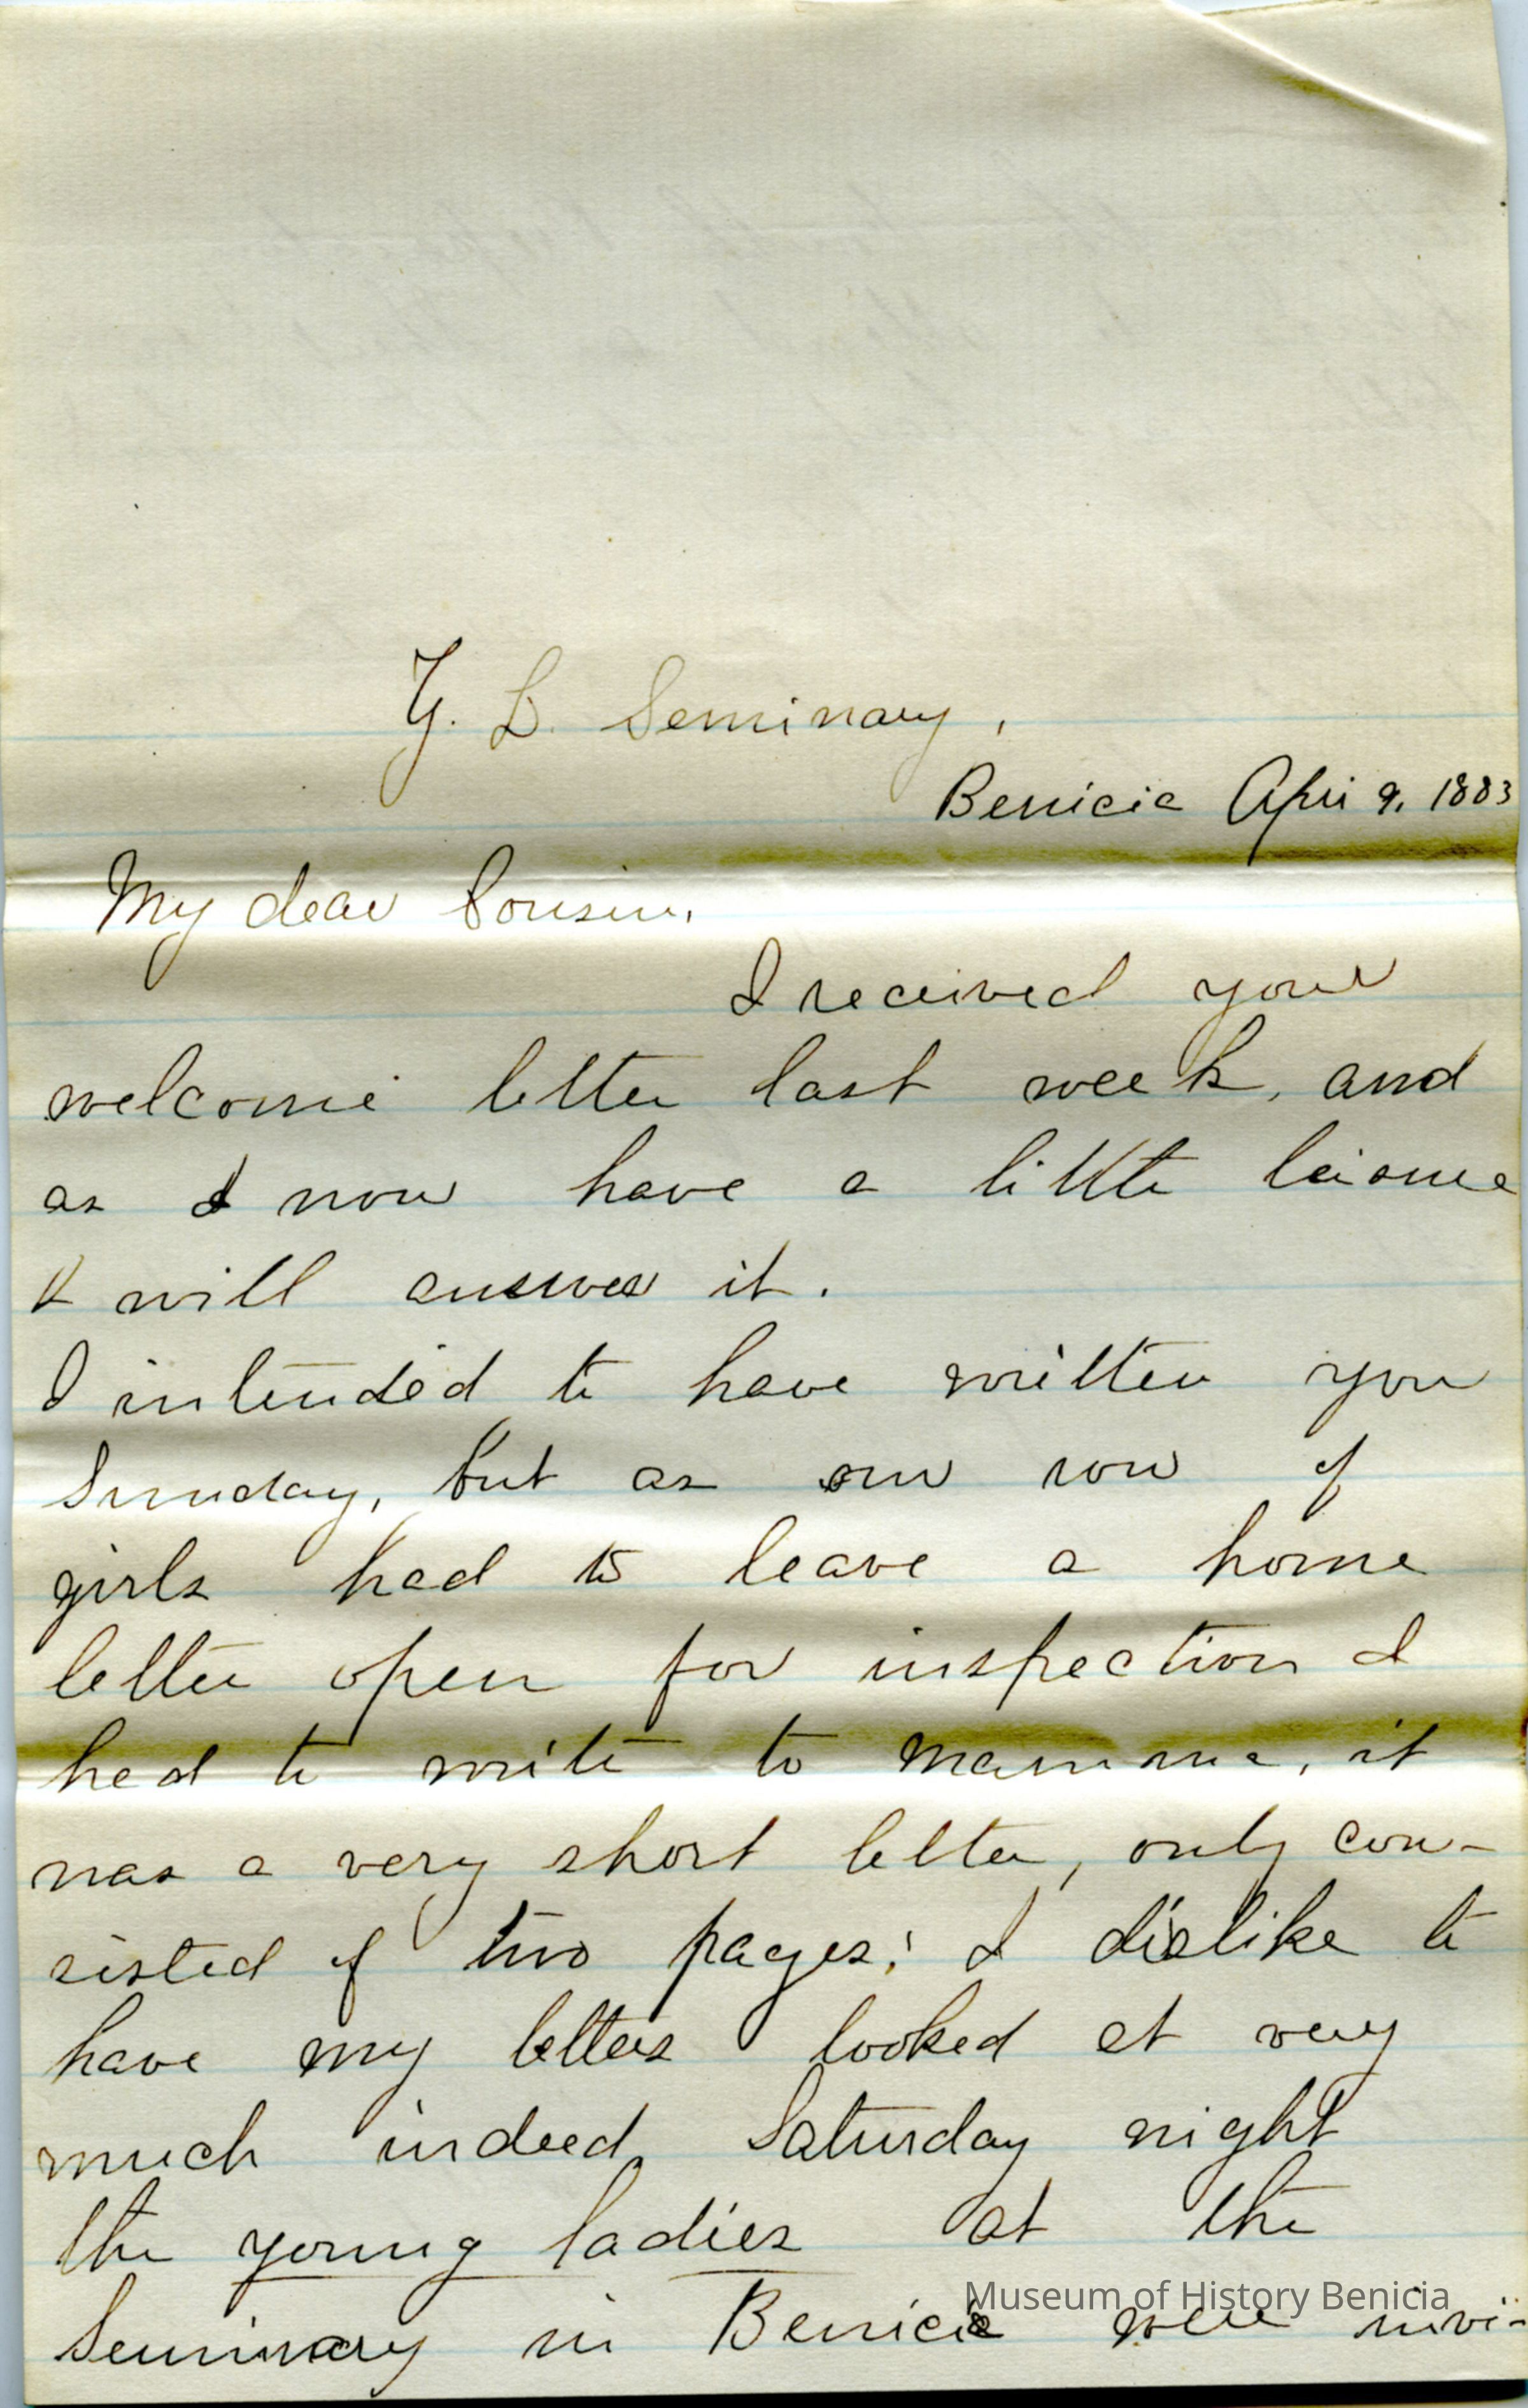 Y. L. Seminary,
Benicia Apri 9, 1883
My dear Cousin,
I received your
welcome letter last week, and
as I now have a little leisure
I will answer it.
I intended to have written you
Sunday, but as our row of
girls had to leave a home
letter open for inspection I
had to write to Mamma, it
was a very short letter, only con-
sisted of two pages; I dislike to
have my letters looked at very
much indeed, Saturday night
the young ladies at the
Seminary in Benicia were invi-
Museum of History Benicia